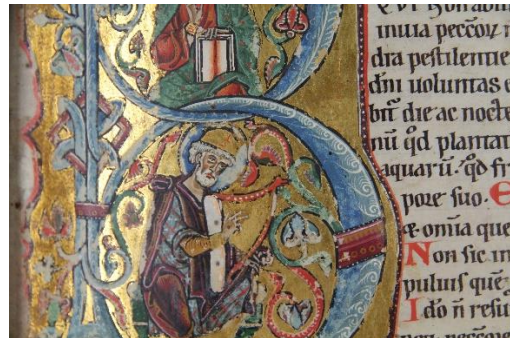 inuia peccoꝝ
dra pestilentie
dñi uoluntas e
bit̄ die ac nocte
nū qd̄ plantat
aquarū. qd̄ fr
pore suo. E
⁊ om̄ia que
Non sic im
puluis quē
Ido ñ resu